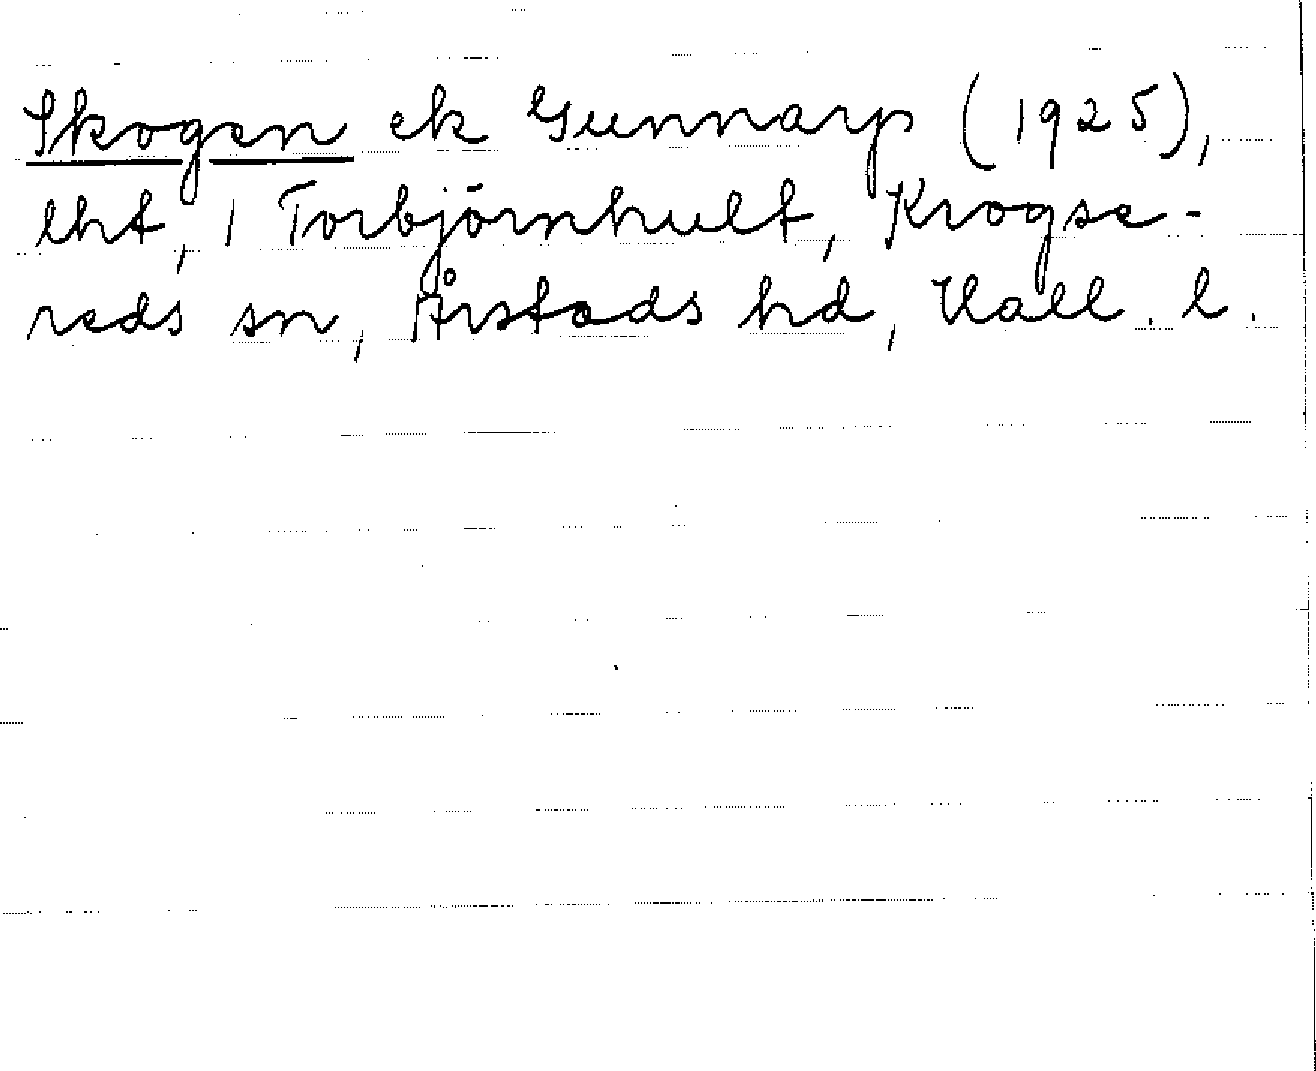 Skogen ek Gunnarp (1925),
lht, 1 Torbjörnhult, Krogse-
reds sn, Årstads hd, Hall. l.